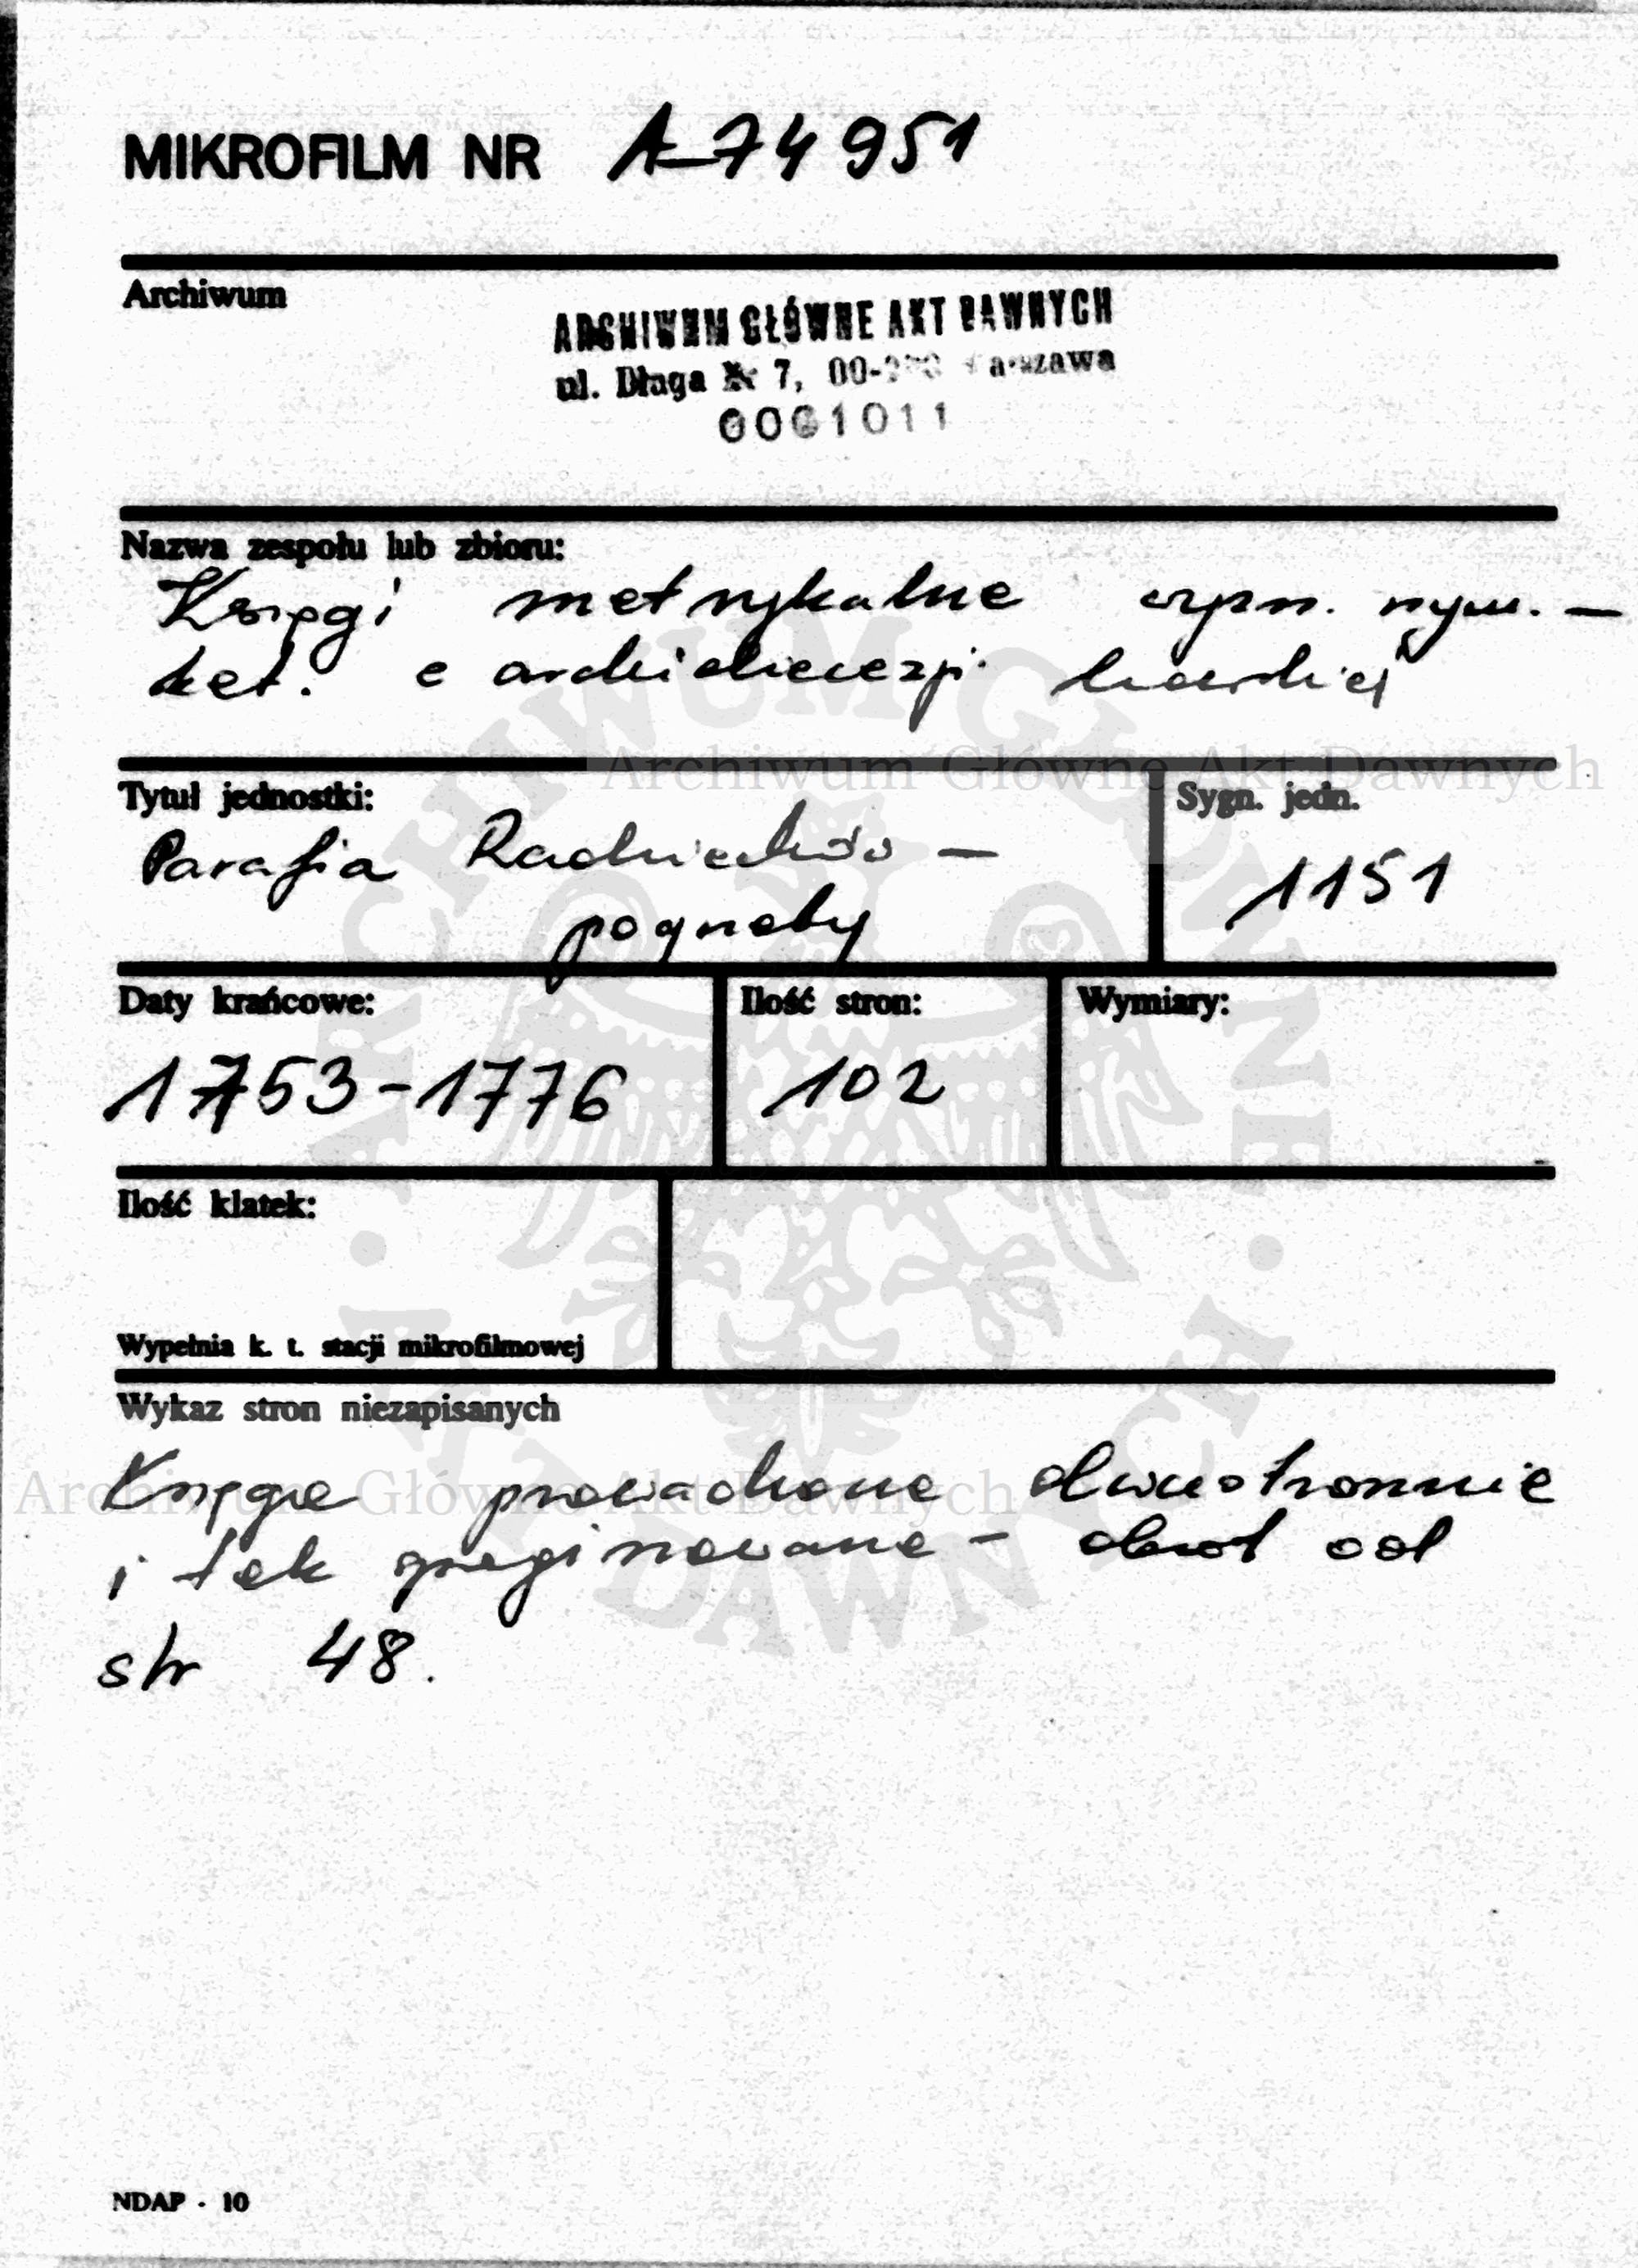 MIKROFILM NR A-74951
Archiwum
ARCHIWUM GŁÓWNE AKT DAWNYCH
ul. Długa Nr 7, 00- Warszawa
0001011
Nazwa zespołu lub zbioru:
Księgi metrykalne wyzn. rzym. -
kat. z archidiecezji lwowskiej
Archiwum Główne Akt Dawnych
Tytuł jednostki:
Sygn. jedn.
Parafia Radziechów -
pogrzeby
1151
Daty krańcowe:
Ilość stron:
Wymiary:
1753-1776
102
Ilość klatek:
Wypełnia k. t. stacji mikrofilmowej
Wykaz stron niezapisanych
Archiwum Główne Akt Dawnych
Księga prowadzona dwustronnie
i tak spaginowana - obrót od
str 48.
NDAP - 10
ARCHIWUM GŁÓWNE · AKT DAWNYCH ·